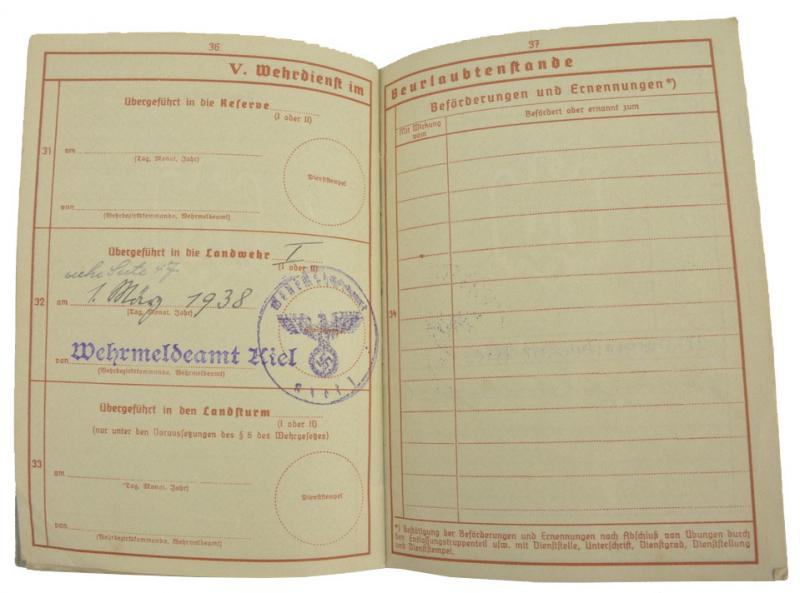 36
V. Wehrdienst im
Übergeführt in die Reserve
(I oder II)
31
am
(Tag, Monat, Jahr)
Dienststempel
von
(Wehrbezirkskommando, Wehrmeldeamt)
Übergeführt in die Landwehr I
(I oder II)
siehe Seite 47
32
am 1. März 1938
(Tag, Monat, Jahr)
von Wehrmeldeamt Kiel
(Wehrbezirkskommando, Wehrmeldeamt)
Wehrmeldeamt
Kiel 1
Übergeführt in den Landsturm
(I oder II)
(nur unter den Voraussetzungen des § 6 des Wehrgesetzes)
33
am
(Tag, Monat, Jahr)
Dienststempel
von
(Wehrbezirkskommando, Wehrmeldeamt)
37
Beurlaubtenstande
Beförderungen und Ernennungen*)
Mit Wirkung
vom
Befördert oder ernannt zum
34
*) Bestätigung der Beförderungen und Ernennungen nach Abschluß von Übungen durch
den Entlassungstruppenteil usw. mit Dienststelle, Unterschrift, Dienstgrad, Dienststellung
und Dienststempel.